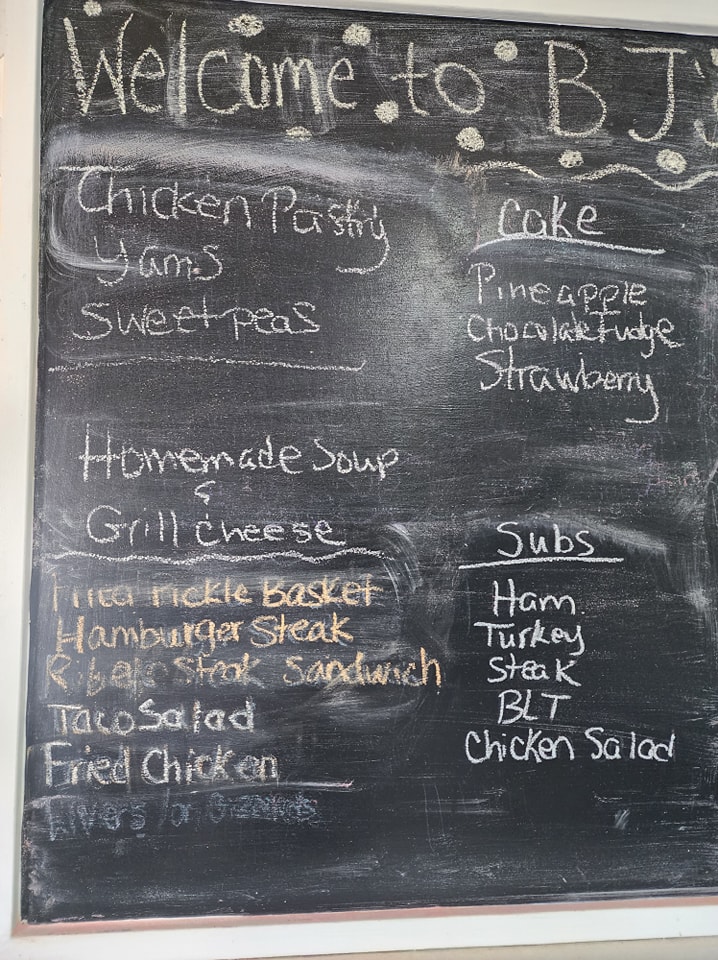 Welcome to BJ's
Chicken Pastry
Yams
Sweet peas
Homemade Soup
&
Grill cheese
Fried Pickle Basket
Hamburger Steak
Ribeye Steak Sandwich
Taco Salad
Fried Chicken
Livers or Gizzards
Cake
Pineapple
Chocolate Fudge
Strawberry
Subs
Ham
Turkey
Steak
BLT
Chicken Salad